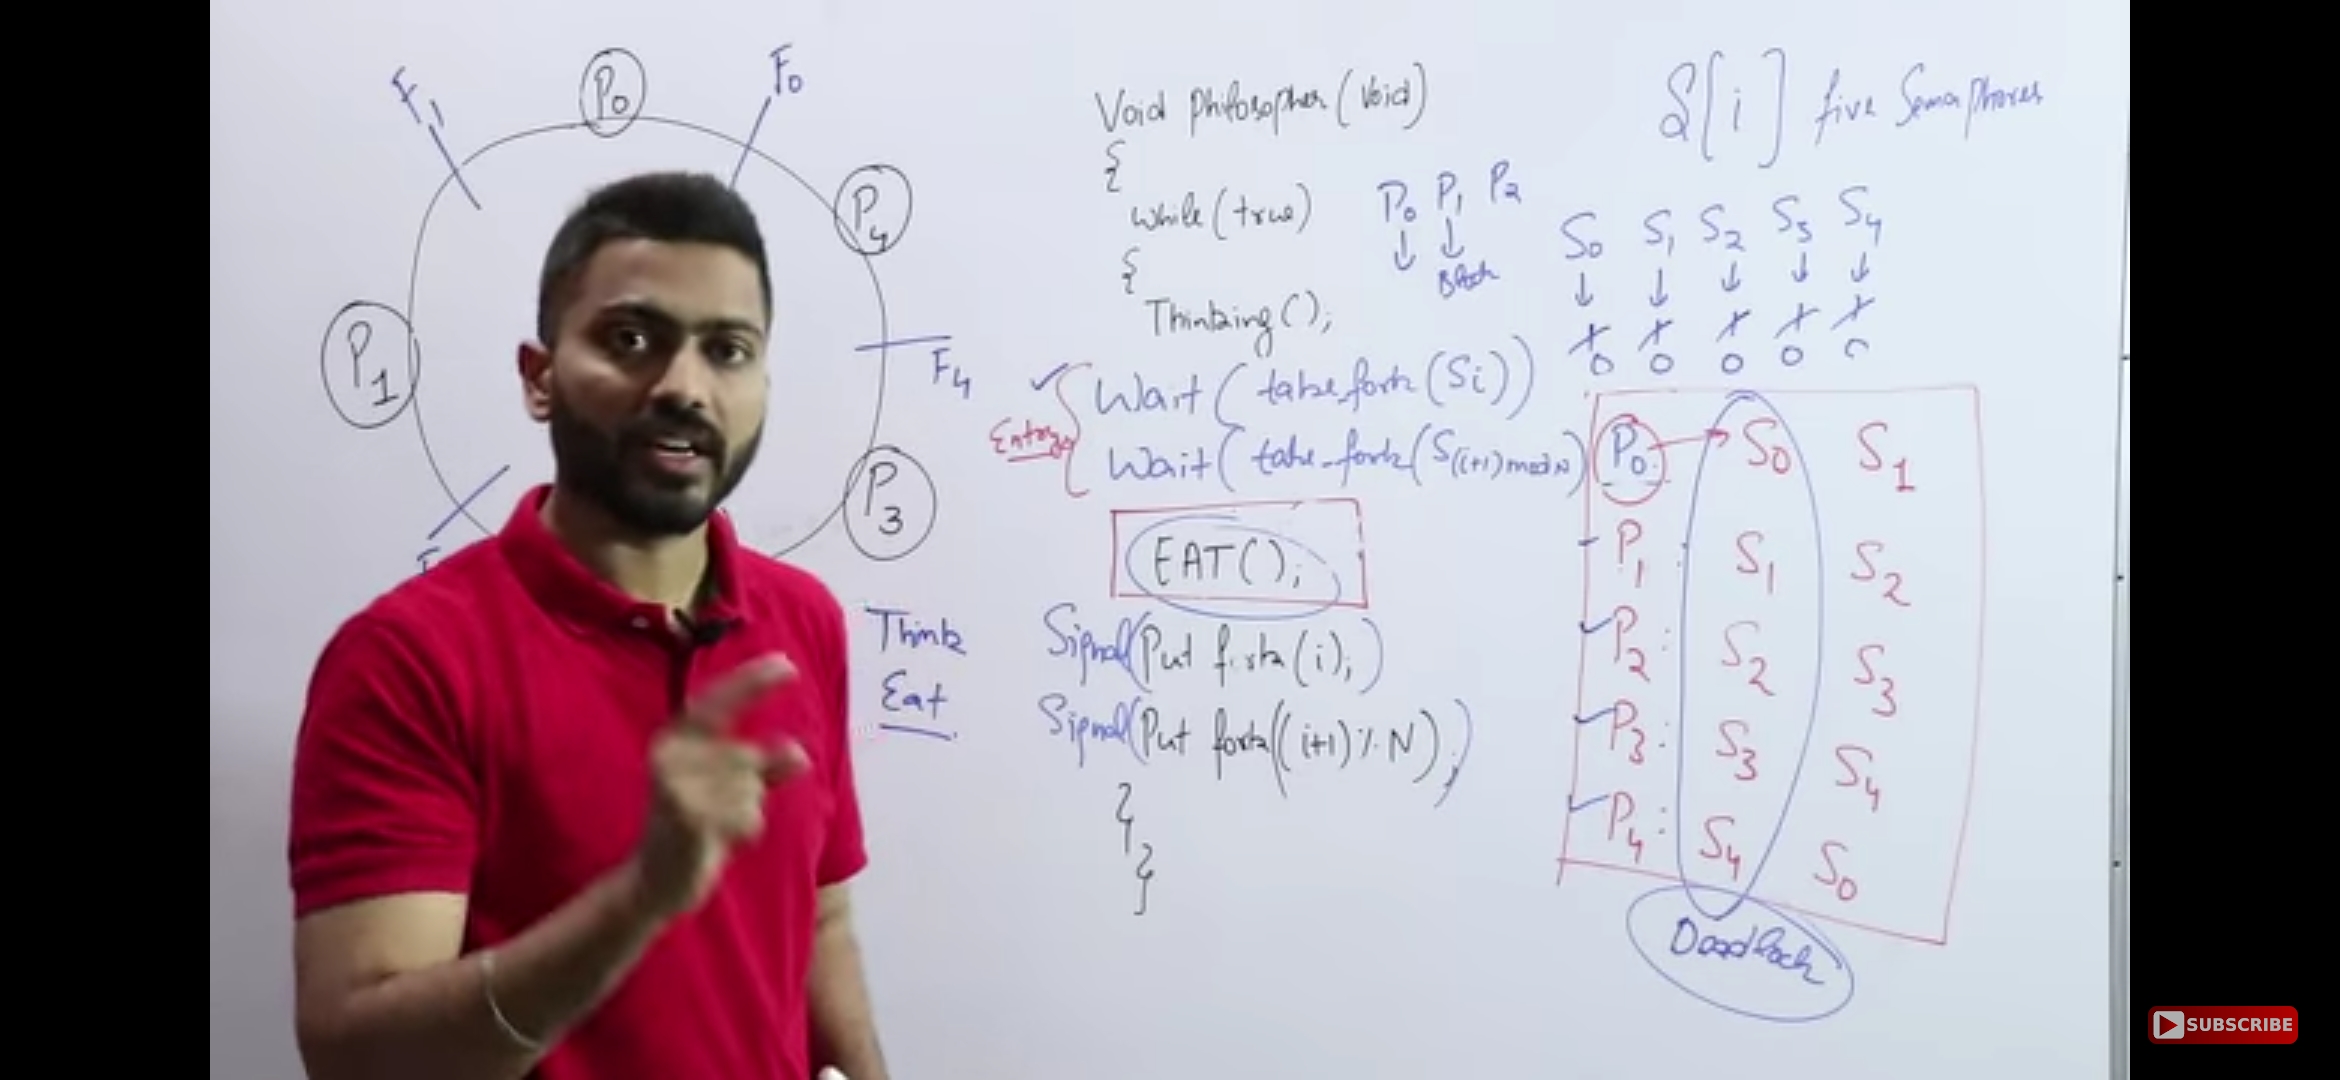 F1
P0
F0
P4
P1
F4
P3
F
Think
Eat
Void Philosopher(Void)
{
while(true)
{
Thinking();
Entry
Wait(take_fork(Si))
Wait(take_fork(S(i+1)mod N)
EAT();
Signal(Put fork(i);)
Signal(Put fork((i+1)%N);)
}
}
P0 P1 P2
Block
S[i] five Semaphores
S0 S1 S2 S3 S4
0 0 0 0 0
P0. S0 S1
P1: S1 S2
P2: S2 S3
P3: S3 S4
P4: S4 S0
Deadlock
SUBSCRIBE